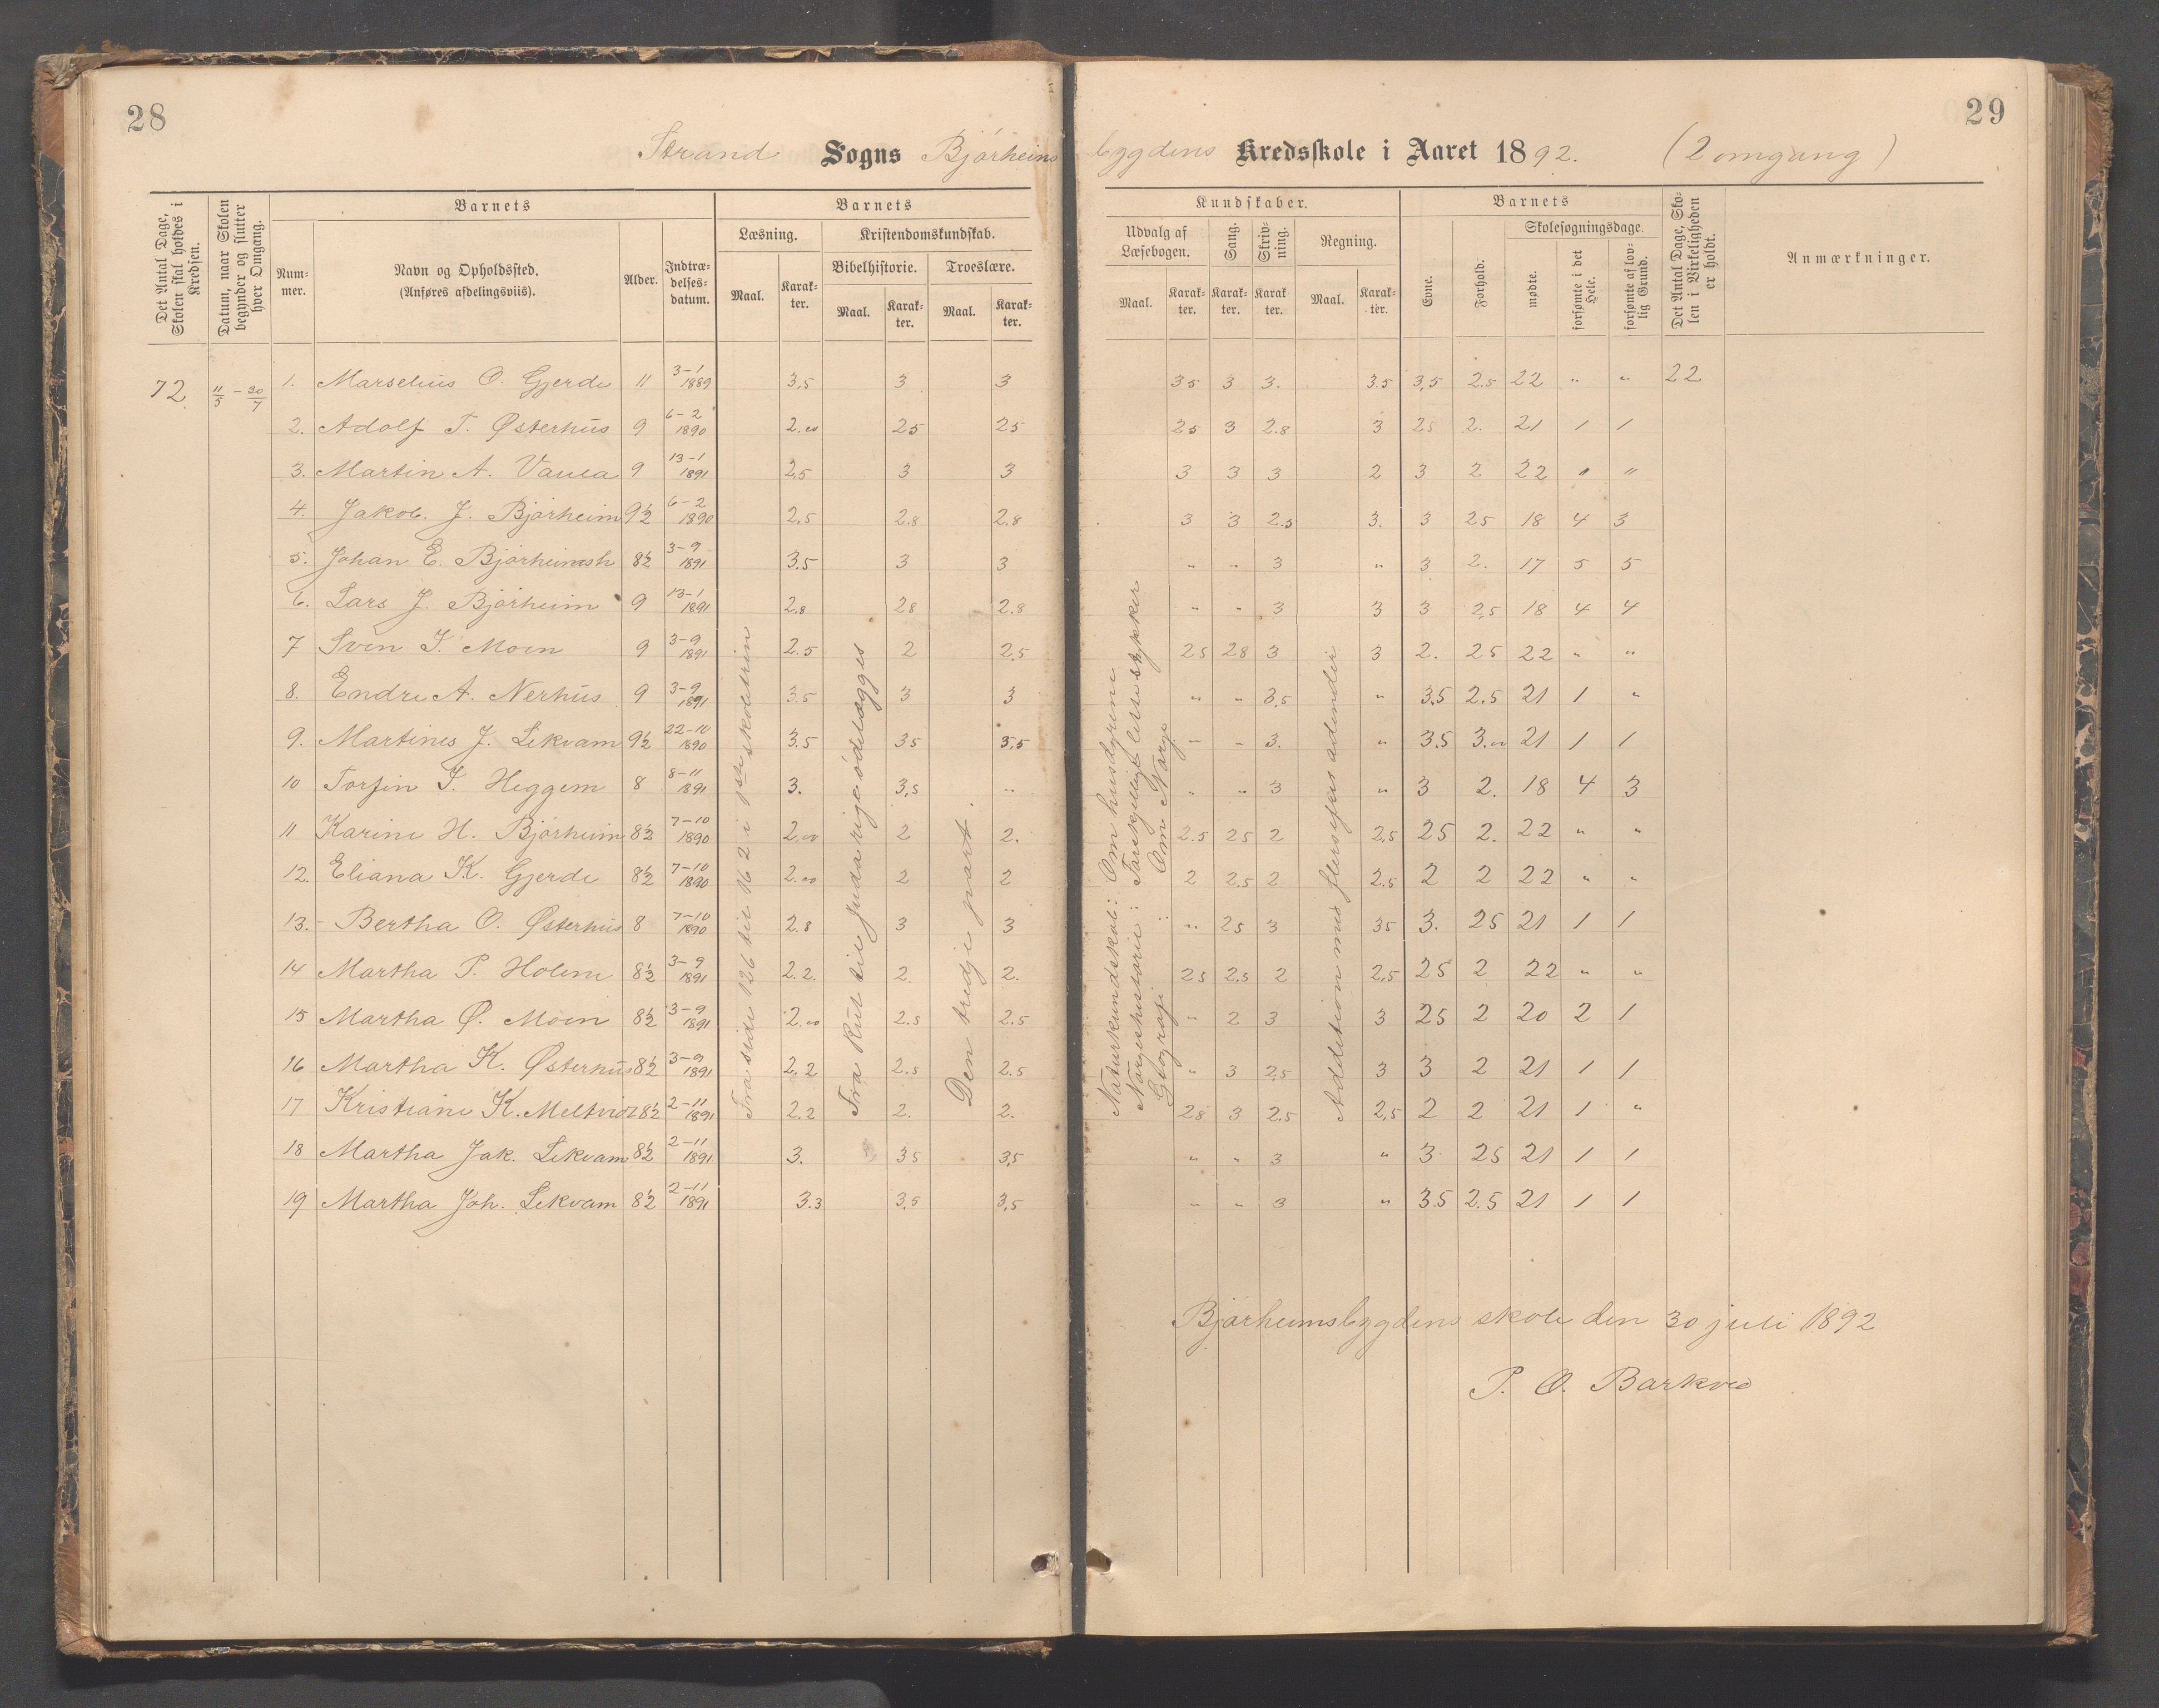 28
29
Strand Sogns Bjørheims bygdens Kredsskole i Aaret 1892. (2 omgang)
Det Antal Dage, Skolen skal holdes i Kredsen.
Datum, naar Skolen begynder og slutter hver Omgang.
Barnets
Nummer.
Navn og Opholdssted.
(Anføres afdelingsviis).
Alder.
Indtrædelsesdatum.
Barnets
Læsning.
Maal.
Karakter.
Kristendomskundskab.
Bibelhistorie.
Maal.
Karakter.
Troeslære.
Maal.
Karakter.
Kundskaber.
Udvalg af Læsebogen.
Maal.
Karakter.
Sang.
Karakter.
Skrivning.
Karakter.
Regning.
Maal.
Karakter.
Barnets
Evne.
Forhold.
Skolesøgningsdage.
mødte.
forsømte i det Hele.
forsømte af lovlig Grund.
Det Antal Dage, Skolen i Virkeligheden er holdt.
Anmærkninger.
72 11/5 – 30/7 1. Marselius O. Gjerde 11 3–1 1889 3,5 3 3 35 3 3. 3.5 3,5 2.5 22 " " 22
2. Adolf T. Østerhus 9 6–2 1890 2.00 25 25 25 3 2.8 3 25 2. 21 1 1
3. Martin A. 9 13–1 1891 2,5 3 3 3 3 3 2 3 2 22 " "
4. Jakob. J. Bjørheim 9½ 6–2 1890 2.5 2.8 2.8 3 3 2.5 3. 3 25 18 4 3
5. Johan E. Bjørheimsh 8½ 3–9 1891 3.5 3 3 " " 3 " 3 2. 17 5 5
6. Lars J. Bjørheim 9 13–1 1891 2.8 28 2.8 " " 3 3 3 2,5 18 4 4
7 Sven I. Moen 9 3–9 1891 2.5 2 2,5 25 28 3 3 2. 25 22 " "
8. Endre A. Nerhus 9 3–9 1891 3.5 3 3 " " 3,5 " 3.5 2.5 21 1 "
9. Martines J. Lekvam 9½ 22–10 1890 3.5 35 3,5 " " 3. " 3.5 3.00 21 1 1
10 Torfin I. Heggem 8 8–11 1891 3. 3,5 " " " 3 " 3 2. 18 4 3
11 Karine H. Bjørheim 8½ 7–10 1890 2,00 2 2. 2.5 25 2 2,5 25 2. 22 " "
12. Eliana K. Gjerde 8½ 7–10 1890 2.00 2 2 2 2.5 2 2.5 2 2 22 " "
13. Bertha O. Østerhus 8 7–10 1890 2.8 3 3 " 25 3 35 3. 25 21 1 1
14 Martha P. Holem 8½ 3–9 1891 2.2. 2. 2. 25 2,5 2 2,5 25 2 22 " "
15 Martha Ø. Moen 8½ 3–9 1891 2.00 2.5 2.5 " 2 3 3 25 2 20 2 1
16 Martha K. Østerhus 8½ 3–9 1891 2.2 2.5 2.5 " 3 2,5 3 3 2 21 1 1
17 Kristiane K. Meltveid 8½ 2–11 1891 2.2 2. 2. 28 3 2.5 2,5 2 2 21 1 "
18 Martha Jak. Lekvam 8½ 2–11 1891 3. 35 3,5 " " 3 " 3 25 21 1 1
19 Martha Joh. Lekvam 8½ 2–11 1891 3.3 3,5 3,5 " " 3 " 3.5 2.5 21 1 1
Fra side 126 til 162 i 1ste skoletrin
Fra Rut til Juda rige ødelægges
Den tredje part.
Naturkundskab: Om husdyrene
Norgeshistorie: Forskjellige læsestykker
Geografi : Om Norge
Addition med flersifret addender
Bjørheimsbygdens skole den 30 juli 1892
P. O. Barkved